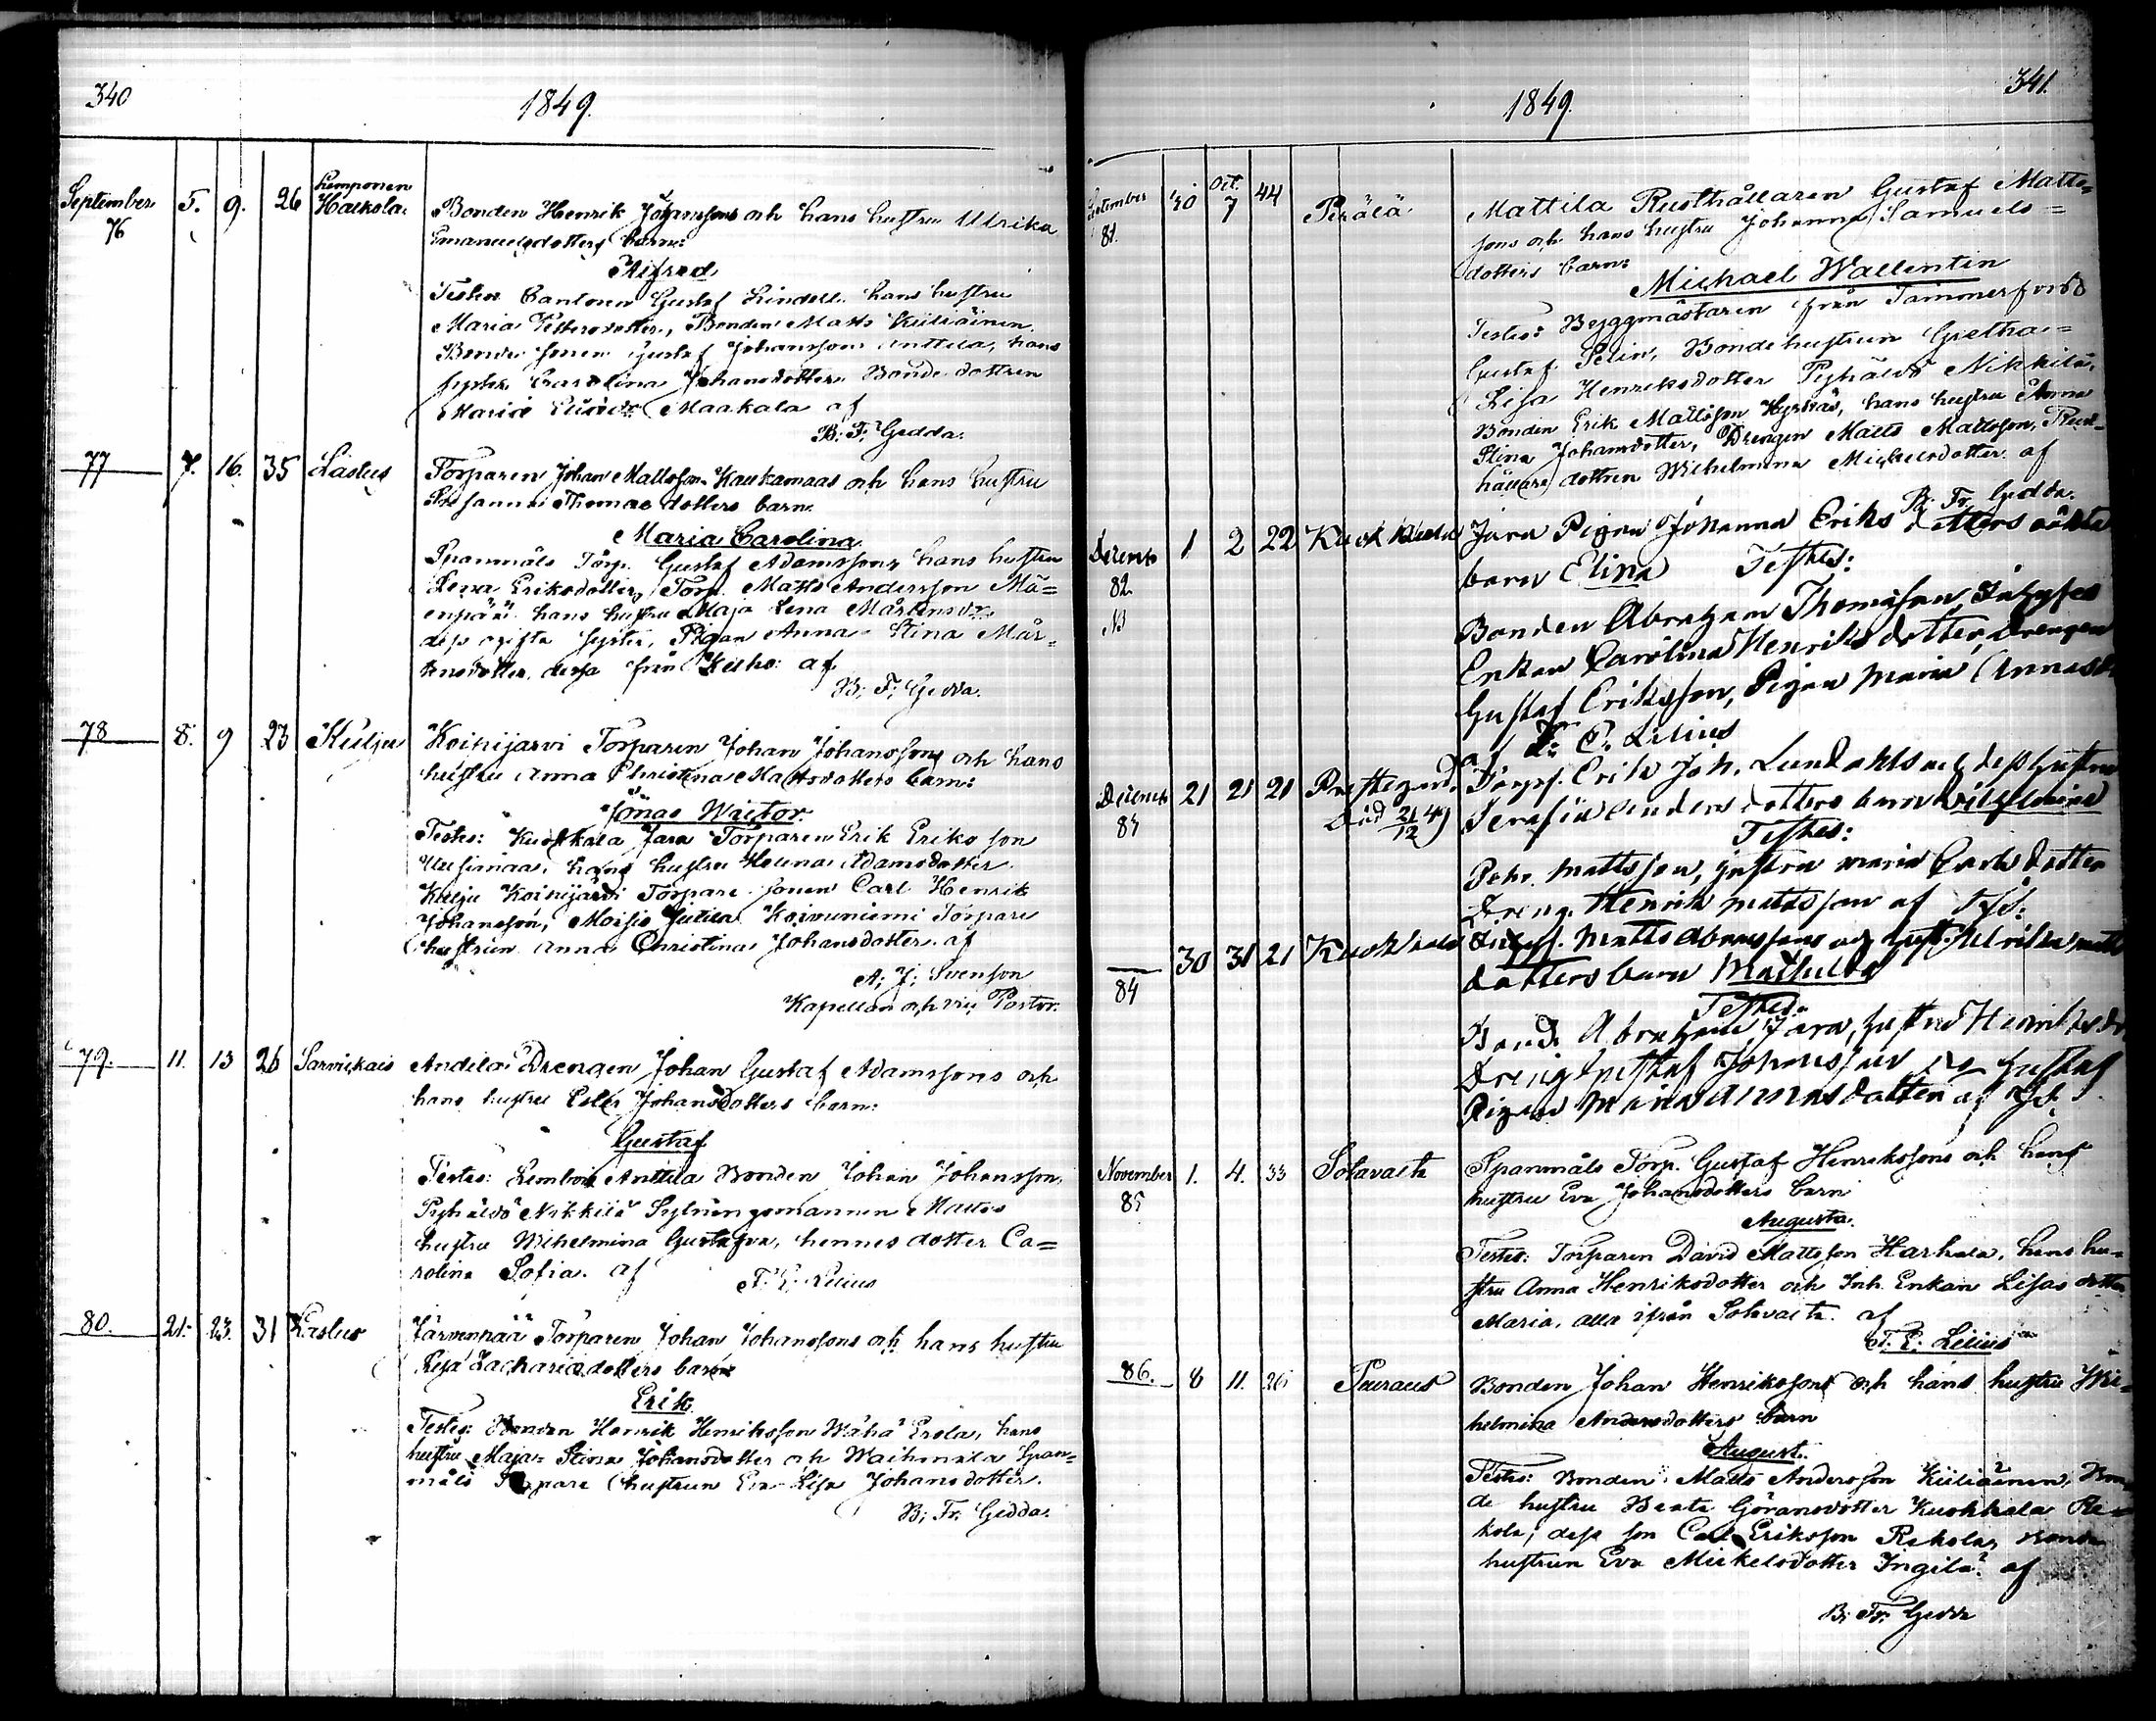 340
1849.
September 5. 9. 26 Lemponen
76 Halkola.
Bonden Henrik Johanssons och hans hustru Ulrika
Emanuelsdotters barn:
Alfred
Testes Cantoren Gustaf Lindell hans hustru
Maria Pettersdotter, Bonden Matts Kiiliäinen.
Bonde sonen Gustaf Johansson Anttila, hans
syster Carolina Johansdotter Bonde dottren
Maria Maakala af
B. F. Gedda.
77 7. 16. 35 Lastus
Torparen Johan Mattsson Kaukamaas och hans hustru
Susanna Thomasdotters barn.
Maria Carolina
Spanmåls Torp. Gustaf Adamsson, hans hustru
Lena Eriksdotter, Torp. Matts Andersson Mä=
enpää hans hustru Maja Lena Mårtensdr.
dess ogifta syster, Pigan Anna Stina Mår-
tensdotter dessa från Kesko: af
B. F. Gedda.
78 8. 9 23 Kulju
Koihijärvi Torparen Johan Johanssons och hans
hustru Anna Christina Mattsdotters barn:
Jonas Wictor.
Testes: Kuokkala Jara Torparen Erik Eriksson
Uusimaa, hans hustru Helena Adamsdotter
Kulju Koihijärvi Torpare sonen Carl Henrik
Johansson, Moisio Jutila Koivuniemi Torpare
hustrun Anna Christina Johansdotter. af
A. J. Svenson
Kapellan och vic. Pastor.
79. 11. 13 26 Sarvikais
Andila Drengen Johan Gustaf Adamssons och
hans hustru Ester Johansdotters barn:
Gustaf
Testes: Lembois Anttila Bonden Johan Johansson,
Pyhäldö Nikkilä Sytningsmannen Matts
hustru Wilhelmina Gustafsdr, hennes dotter Ca=
rolina Sofia. af F. E. Lilius
80. 21. 23. 31 Lastus
Järvenpää Torparen Johan Johanssons och hans hustru
Lisa Zachariædotters barn
Erik
Testes: Bonden Henrik Henriksson Wähä Erola, hans
hustru Maja Stina Johansdotter och Waihmala Span=
måls Torpare hustrun Eva Lisa Johansdotter.
B. Fr. Gedda.
341.
1849.
September 30 Oct. 7 44 Perälä
81.
Mattila Rusthållaren Gustaf Matts=
sons och hans hustru Johanna Samuels=
dotters barn:
Michael Wallentin
Testes: Byggmästaren från Tammerfors
Gustaf Selin, Bondehustrun Gretha=
Lisa Henriksdotter Pyhäldö Nikkilä,
Bonden Erik Mattsson Hyrkäs, hans hustru Anna
Stina Johansdotter, Drengen Matts Mattsson, Rust-
hållare dottren Wilhelmina Mickelsdotter af
B. Fr. Gedda.
1 2 22 Kuokkala
82
Jara Pigan Johanna Eriksdotters oäkta
barn Elina Testes:
Bonden Abraham Thomasson
Enkan Carolina Henriksdotter, Drengen
Gustaf Eriksson, Pigan Maria
af F. E. Lilius
21 21 21 Prestegård.
Död 21/12 49
Torp. Erik Joh. Lundahls och dess hustru
Serafia dotters barn Wilhelmina
Testes:
Pehr Mattsson, hustru Maria Carlsdotter
Dreng. Henrik Mattsson af
84 30 31 21 Kuokkala
Matts Abramssons och hust. Ulrika
dotters barn Mathilda
Testes:
Bond. Abraham Jara, hustru
Dreng Gustaf Johansson
Pigan Maria dotter af
November 1. 4. 33 Solavaita
85
Spanmåls Torp. Gustaf Henrikssons och hans
hustru Eva Johansdotters barn
Augusta.
Testes: Torparen David Mattsson Harhala, hans hu-
stru Anna Henriksdotter och Inh. Enkan Lisas dotter
Maria, alla ifrån Solavaita. af
F. E. Lilius
86. 8 11. 26 Pauraus
Bonden Johan Henrikssons och hans hustru Wil-
helmina Andersdotters barn
August.
Testes: Bonden Matts Andersson Kiiliäinen, Bon-
de hustru Beata Göransdotter Kuokkala Re-
kola, dess son Carl Eriksson Rekola, Bonde
hustrun Eva Mickelsdotter Ingilä. af
B. Fr. Gedda